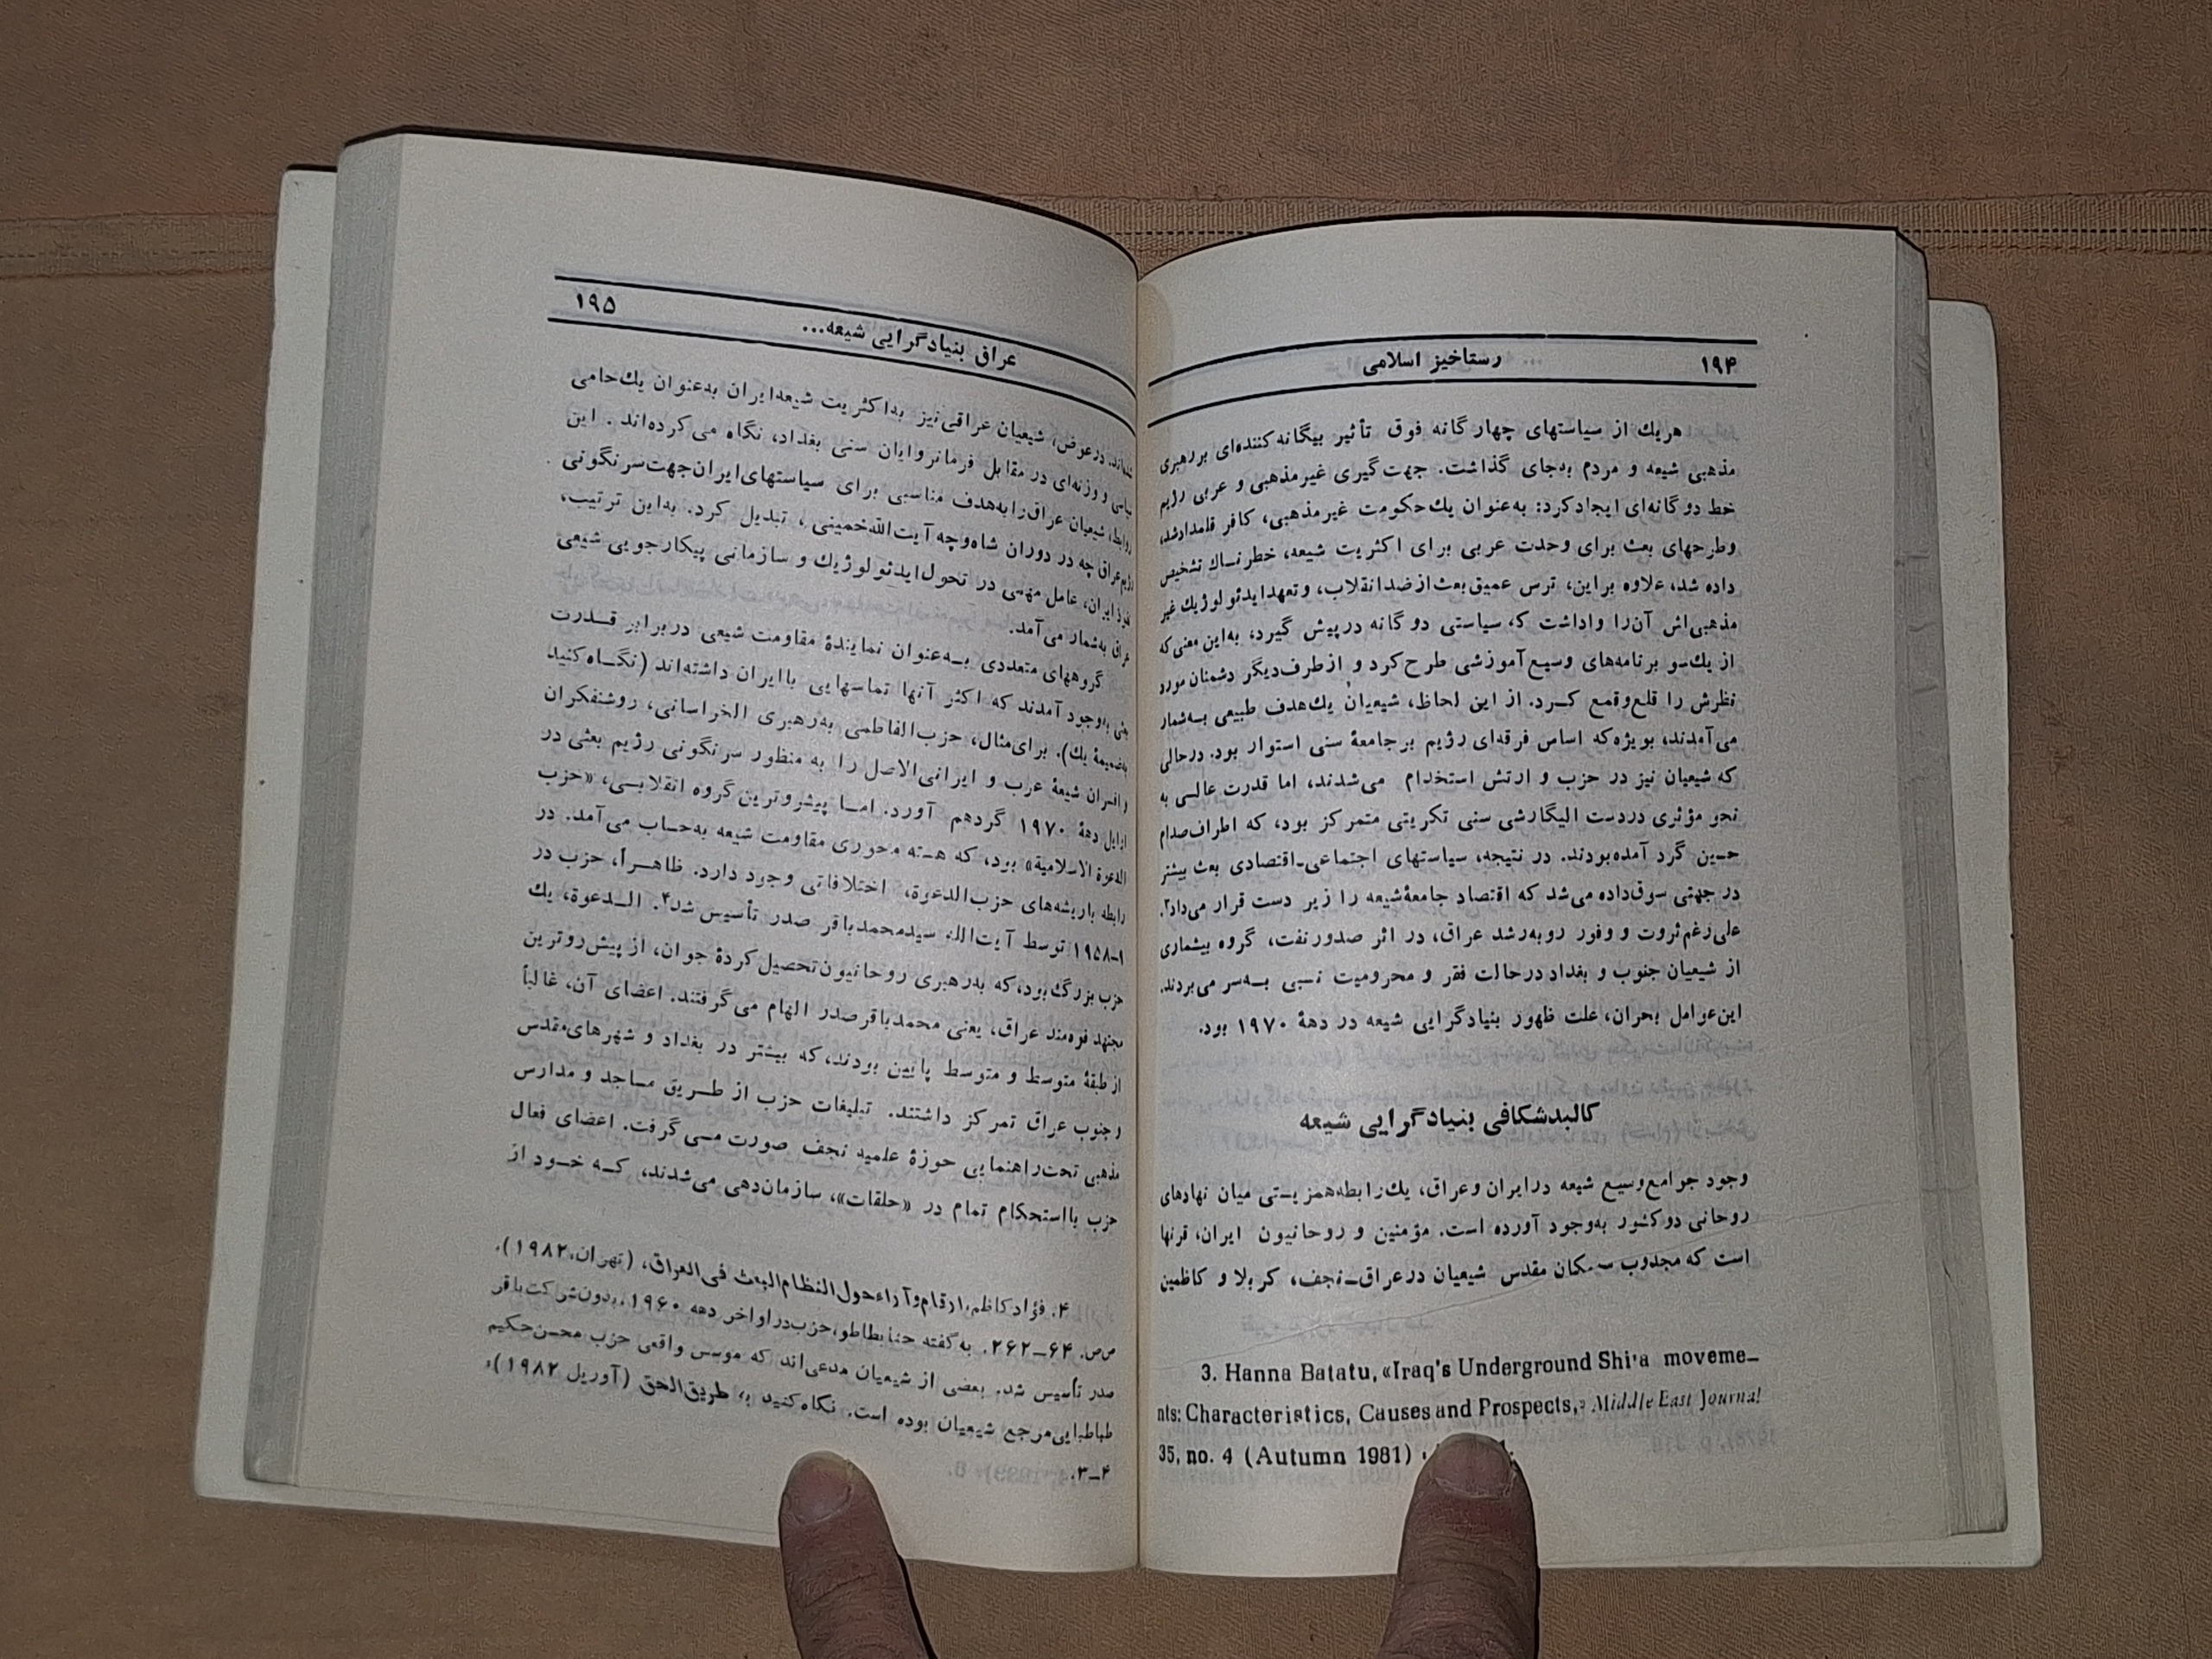 ۱۹۴ رستاخیز اسلامی
هریك از سیاستهای چهارگانه فوق تأثیر بیگانه‌کننده‌ای بررهبری
مذهبی شیعه و مردم به‌جای گذاشت. جهت‌گیری غیرمذهبی و عربی رژیم
خط دوگانه‌ای ایجادکرد: به‌عنوان یك‌حکومت غیرمذهبی، کافر قلمدادشد،
وطرحهای بعث برای وحدت عربی برای اکثریت شیعه، خطرناك تشخیص
داده شد، علاوه براین، ترس عمیق‌بعث‌از ضدانقلاب، وتعهدایدئولوژیك غیر
مذهبی‌اش آن‌را واداشت که، سیاستی دوگانه درپیش گیرد، به‌این معنی‌که
از یك‌سو برنامه‌های وسیع‌آموزشی طرح‌کرد و ازطرف‌دیگر دشمنان مورد
نظرش را قلع‌وقمع کرد. از این لحاظ، شیعیان یك‌هدف طبیعی به‌شمار
می‌آمدند، بویژه‌که اساس فرقه‌ای رژیم برجامعهٔ سنی استوار بود. درحالی
که شیعیان نیز در حزب و ارتش استخدام می‌شدند، اما قدرت عالی به
نحو مؤثری دردست الیگارشی سنی تکریتی متمرکز بود، که اطراف‌صدام
حسین گرد آمده‌بودند. در نتیجه، سیاستهای اجتماعی‌ـ‌اقتصادی بعث بیشتر
در جهتی سوق‌داده می‌شد که اقتصاد جامعهٔ‌شیعه را زیر دست قرار می‌داد۳.
علی‌رغم‌ثروت و وفور روبه‌رشد عراق، در اثر صدورنفت، گروه بیشماری
از شیعیان جنوب و بغداد درحالت فقر و محرومیت نسبی به‌سر می‌بردند.
این‌عوامل بحران، علت ظهور بنیادگرایی شیعه در دههٔ ۱۹۷۰ بود.
کالبدشکافی بنیادگرایی شیعه
وجود جوامع‌وسیع شیعه درایران وعراق، یك‌رابطه‌همزیستی میان نهادهای
روحانی دوکشور به‌وجود آورده است. مؤمنین و روحانیون ایران، قرنها
است که مجذوب سه‌مکان مقدس شیعیان درعراق‌ـ‌نجف، کربلا و کاظمین
3. Hanna Batatu, «Iraq's Underground Shi'a moveme-
nts: Characteristics, Causes and Prospects,» Middle East Journal
35, no. 4 (Autumn 1981)
عراق بنیادگرایی شیعه... ۱۹۵
درعوض، شیعیان عراقی‌نیز به‌اکثریت شیعه‌ایران به‌عنوان یك‌حامی
سیاسی و وزنه‌ای در مقابل فرمانروایان سنی بغداد، نگاه می‌کرده‌اند. این
روابط، شیعیان عراق‌رابه‌هدف مناسبی برای سیاستهای‌ایران‌جهت‌سرنگونی
رژیم‌عراق چه در دوران شاه‌وچه آیت‌الله‌خمینی، تبدیل کرد. به‌این ترتیب،
نفوذ ایران، عامل مهمی در تحول‌ایدئولوژیك و سازمانی پیکارجویی شیعی
عراق به‌شمار می‌آمد.
گروههای متعددی به‌عنوان نمایندهٔ مقاومت شیعی دربرابر قدرت
بعثی به‌وجود آمدند که اکثر آنها تماسهایی باایران داشته‌اند (نگاه‌کنید
به‌ضمیمهٔ یك). برای‌مثال، حزب‌الفاطمی به‌رهبری الخراسانی، روشنفکران
و افسران شیعهٔ عرب و ایرانی‌الاصل را به منظور سرنگونی رژیم بعثی در
اوایل دههٔ ۱۹۷۰ گردهم آورد. اما پیشروترین‌گروه انقلابی، «حزب
الدعوة الاسلامیة» بود، که هسته محوری مقاومت شیعه به‌حساب می‌آمد. در
رابطه باریشه‌های حزب‌الدعوة، اختلافاتی وجود دارد. ظاهراً، حزب در
توسط آیت‌الله سیدمحمدباقر صدر تأسیس شد۴. الدعوة، یك
حزب بزرگ‌بود، که به‌رهبری روحانیون‌تحصیل‌کردهٔ جوان، از پیش‌روترین
مجتهد فرهمند عراق، یعنی محمدباقرصدر الهام می‌گرفتند. اعضای آن، غالباً
از طبقهٔ متوسط و متوسط پایین بودند،که بیشتر در بغداد و شهرهای‌مقدس
و جنوب عراق تمرکز داشتند. تبلیغات حزب از طریق مساجد و مدارس
مذهبی تحت‌راهنمایی حوزهٔ علمیه نجف صورت می‌گرفت. اعضای فعال
حزب بااستحکام تمام در «حلقات»، سازمان‌دهی می‌شدند، که خود از
۴. فؤادکاظم، ارقام‌وآراءحول‌النظام‌البعث فی‌العراق، (تهران،۱۹۸۲).
صص. ۶۴ـ۲۶۲. به‌گفته حنابطاطو،حزب‌دراواخر دهه ۱۹۶۰، بدون‌شرکت‌باقر
صدر تأسیس شد. بعضی از شیعیان مدعی‌اند که موسس واقعی حزب محسن‌حکیم
طباطبایی‌مرجع شیعیان بوده است. نگاه‌کنید به، طریق‌الحق (آوریل ۱۹۸۲)،
۴ـ۳.